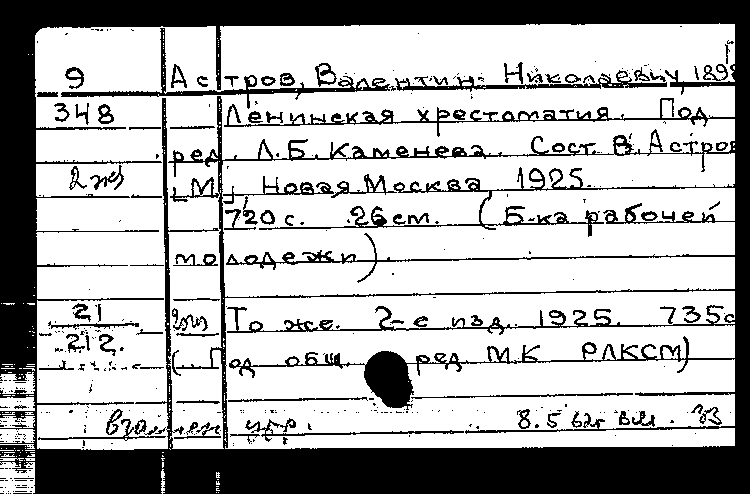 9 Астров, Валентин Николаевич, 1898
348 Ленинская хрестоматия. Под
ред. Л.Б. Каменева. Сост. В. Астров
2 экз [М], Новая Москва, 1925.
720 с. 26 см. (Б-ка рабочей
молодежи).
21 2 экз То же. 2-е изд. 1925. 735с
212. (Под общ. ред. МК РЛКСМ)
взамен утр. 8.5 62г